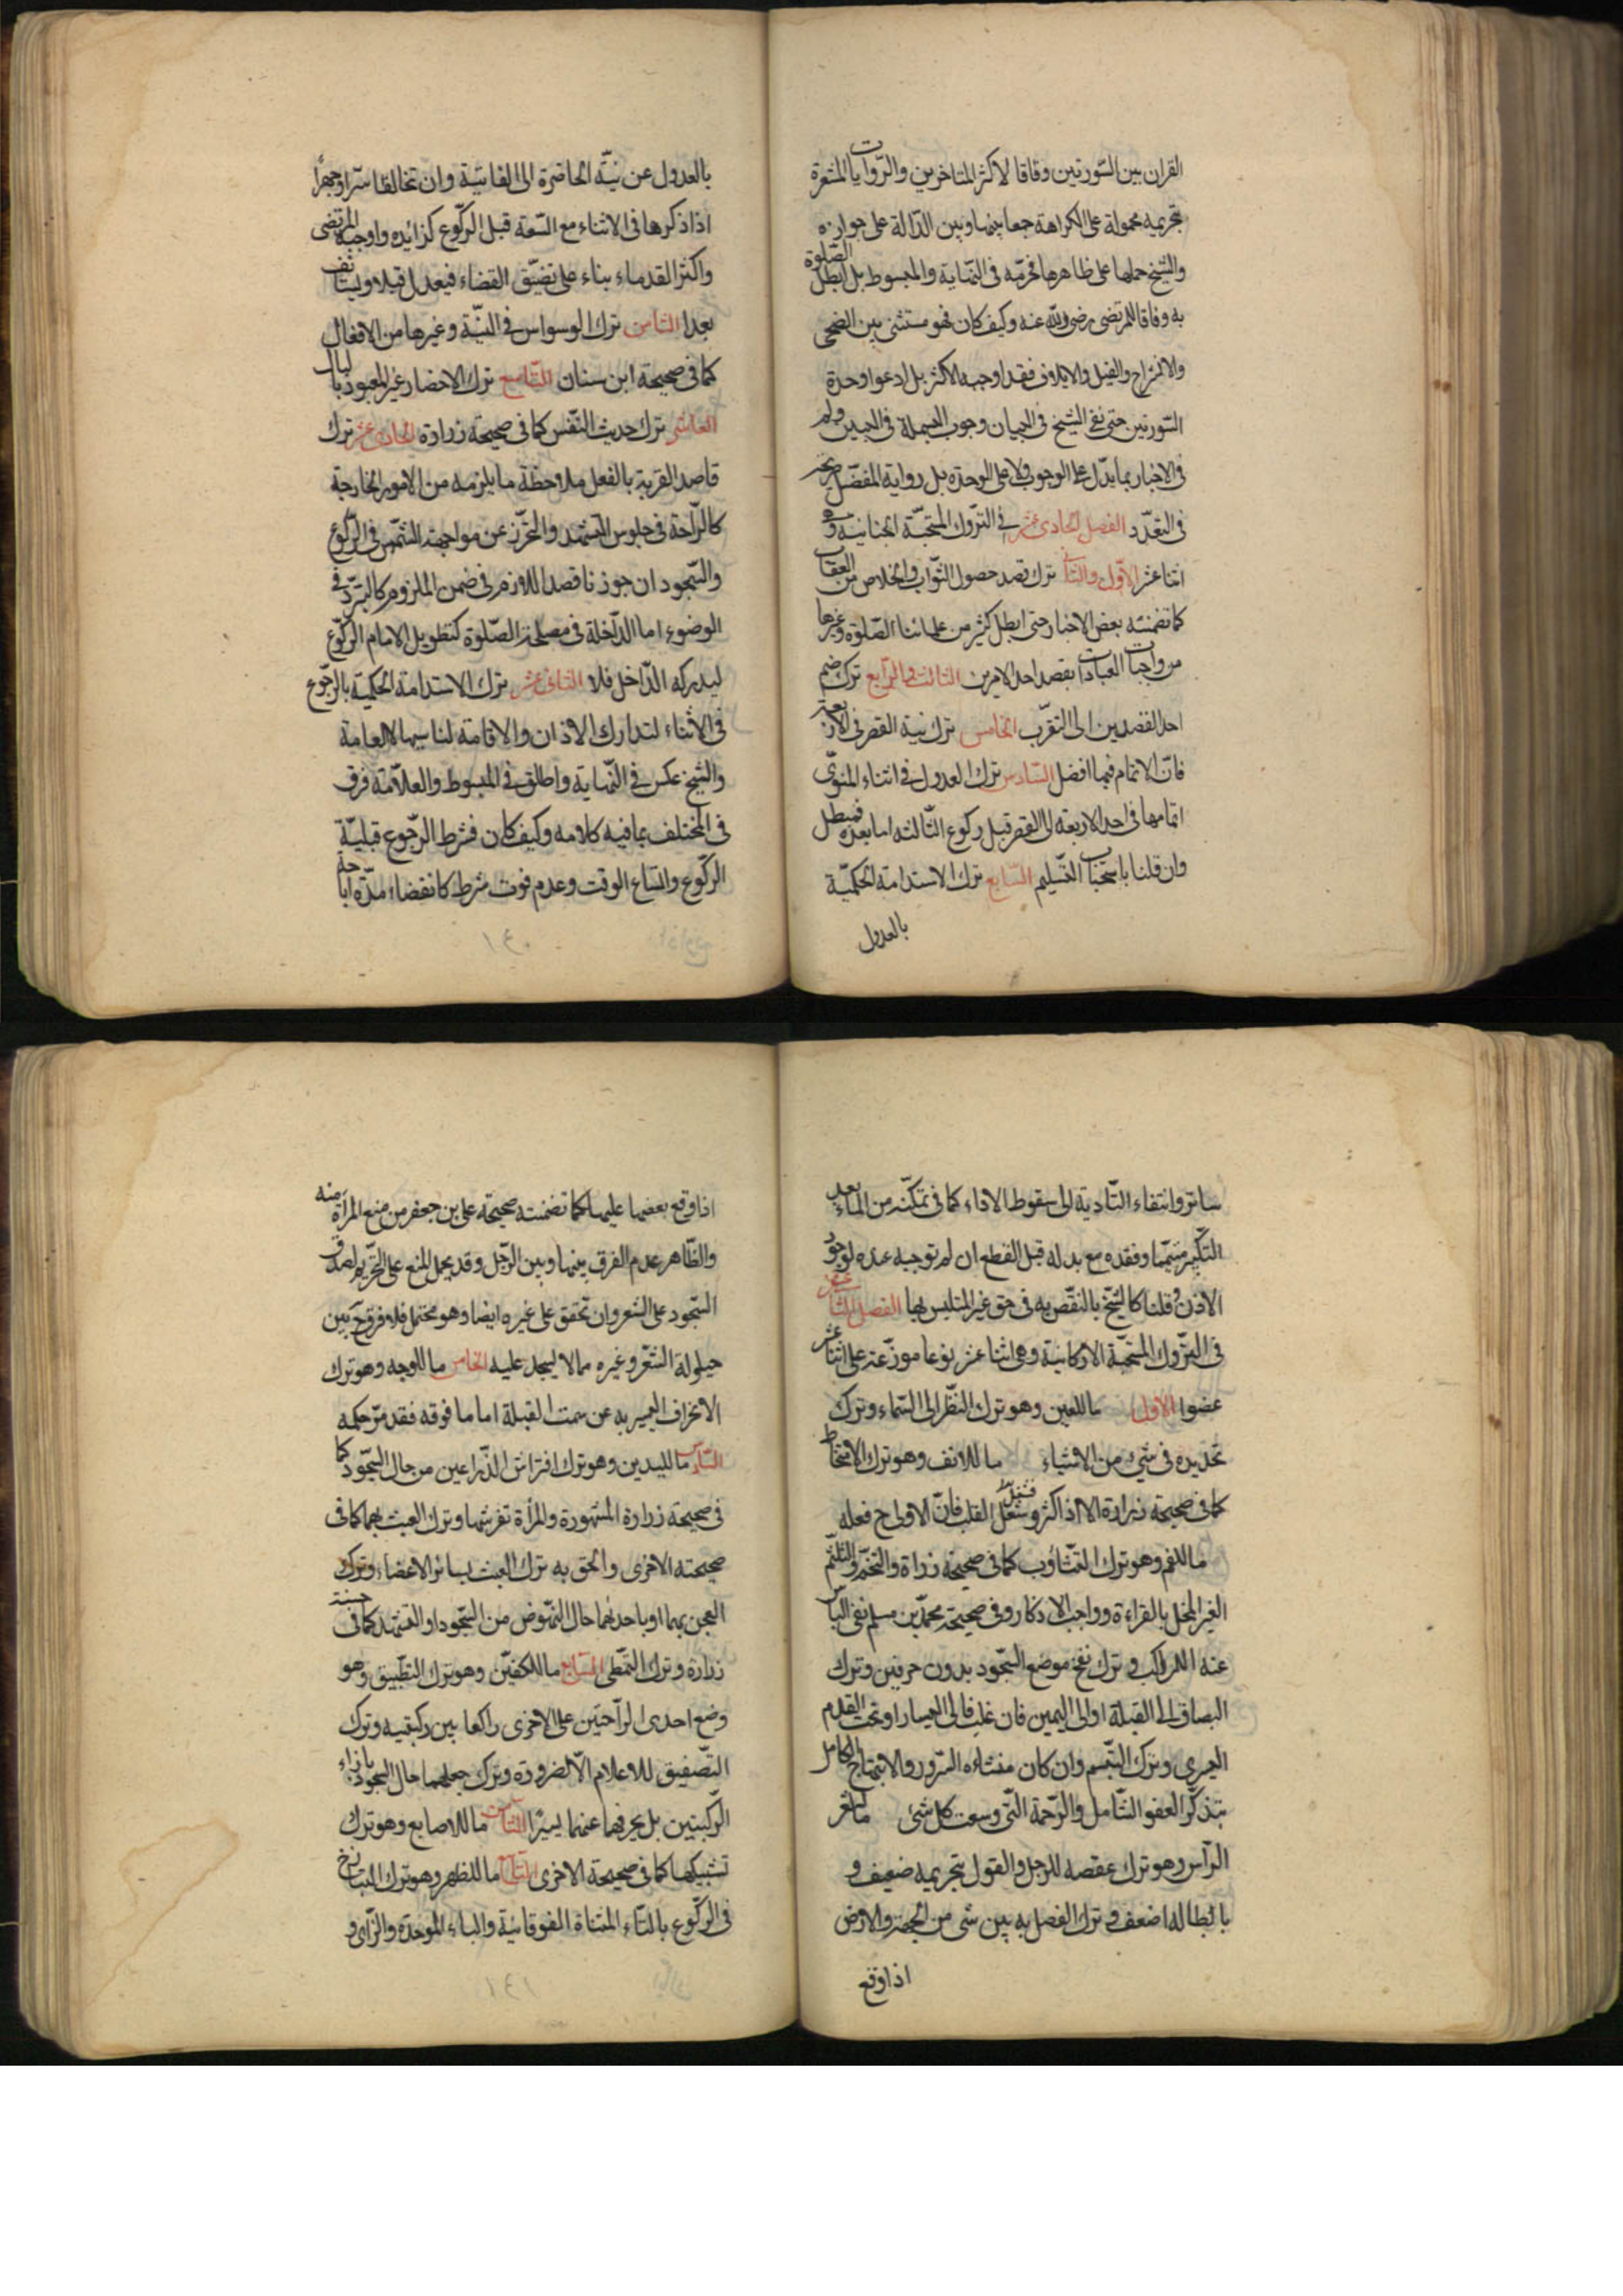 القران بين السّورتين وفاقا لاكثر المتاخرين والرّوايات المشعرة
بتحريمه محمولة على الكراهة جمعا بينها وبين الدّالة على جوازه
والشيخ حملها على ظاهرها فحرّمه فى النّهاية والمبسوط بل ابطل الصّلوة
به وفاقا للمرتضى رضى الله عنه وكيف كان فهو مستثنى بين الضحى
والانشراح والفيل والايلاف فقد اوجبه الاكثر بل ادعوا وحدة
السّورتين حتى نفى الشيخ فى التبيان وجوب البسملة فى البين ولم
فى الاخبار ما يدلّ على الوجوب ولا على الوحدة بل رواية المفضّل صريحة
فى التعدّد الفصل الحادى عشر فى التّروك المستحبّة الجنانية وهى
اثنا عشر الاوّل والثانى ترك قصد حصول الثّواب والخلاص من العقاب
كما تضمنته بعض الاخبار حتى ابطل كثير من علمائنا الصّلوة وغيرها
من واجبات العبادات بقصد احد الامرين الثالث والرّابع ترك ضم
احد القصدين الى التقرّب الخامس ترك نية القصر فى الاربعة
فانّ الاتمام فيها افضل السّادس ترك العدول فى اثناء المنوىّ
اتمامها فى احد الاربعة الى القصر قبل ركوع الثّالثة اما بعده فيبطل
وان قلنا باستحباب التّسليم السّابع ترك الاستدامة الحكميّة
بالعدول
بالعدول عن نيّة الحاضرة الى الفائتة وان تخالفتا سرّا وجهرًا
اذا ذكرها فى الاثناء مع السّعة قبل الركّوع كزايده واوجبه المرتضى
واكثر القدماء بناء على تضيّق القضاء فيعدل قبلا ويستانف
بعدا الثامن ترك الوسواس فى النيّة وغيرها من الافعال
كما فى صحيحة ابن سنان التّاسع ترك الاحضار غير المعبود بالبال
العاشر ترك حديث النّفس كما فى صحيحة زرارة الحادى عشر ترك
قاصد القربة بالفعل ملاحظة ما يلزمه من الامور الخارجة
كالرّاحة فى جلوس التشهّد والتحرّز عن مواجهة الشّمس فى الركّوع
والسّجود ان جوزنا قصد اللازم فى ضمن الملزوم كالتبرّد فى
الوضوء اما الدّاخلة فى مصلحة الصّلوة كتطويل الامام الركّوع
ليدركه الدّاخل فلا الثانى عشر ترك الاستدامة الحكميّة بالرجّوع
فى الاثناء لتدارك الاذان والاقامة لناسيها لالعامة
والشيخ عكس فى النّهاية واطلق فى المبسوط والعلّامة فرق
فى المختلف بما فيه كلامه وكيف كان فشرط الرّجوع قبليّة
الركّوع واتساع الوقت وعدم فوت شرط كانقضاء مدّة اباحة
١٤٠
ساتر وانتفاء التّادية الى سقوط الاداء كما فى تمكنّه من الماء بعد
التكّبير متيمّما وفقده مع بدله قبل القطع ان لم توجبه عده لوجود
الاذن وقلنا كالشيخ بالنقّص به فى حق غير المتلبس بها الفصل الثانى عشر
فى التّروك المستحبّة الاركانية وهى اثنا عشر نوعا موزّعة على اثنا عشر
عضوا الاول ما للعين وهو ترك النظّر الى السّماء وترك
تحديده فى شىء من الاشياء ما للانف وهو ترك الامتخاط
كما فى صحيحة زرارة الا اذا كثر وشغل القلب فانّ الاولى ح فعله
ما للفم وهو ترك التّثاؤب كما فى صحيحة زرارة والتنخّم والتلثّم
الغير المخل بالقراءة وواجب الاذكار وفى صحيحة محمّد بن مسلم نفى الباس
عنه للراكب وترك نفخ موضع السّجود بدون حرفين وترك
البصاق الى القبلة او الى اليمين فان غلب فالى اليسار او تحت القدم
اليسرى وترك التبّسم وان كان منشاؤه السّرور والابتهاج الكامل
بتذكّر العفو الشّامل والرّحمة التّى وسعت كل شىء ما لشعر
الرّأس وهو ترك عقصه للرجل والقول بتحريمه ضعيف و
بابطاله اضعف وترك الفصل به بين شى من الجبهة والارض
اذا وقع
اذا وقع بعضها عليها كما تضمنته صحيحة على بن جعفر من منع المرأة منه
والظّاهر عدم الفرق بينها وبين الرّجل وقد يحمل المنع على التحّريم لصدق
السّجود على الشعر وان تحقق على غيره ايضا وهو محتمل فلا فرق ح بين
حيلولة الشّعر وغيره مما لا يسجد عليه الخامس ما للوجه وهو ترك
الانحراف اليسير به عن سمت القبلة اما ما فوقه فقد مرّ حكمه
السّادس ما لليدين وهو ترك افتراش الذّراعين من حال السّجود كما
فى صحيحة زرارة المشهورة والمرأة تفرشها وترك العبث بهما كما فى
صحيحته الاخرى والحق به ترك العبث بسائر الاعضاء وترك
العجن بهما او باحدهما حال النّهوض من السّجود او التشهّد كما فى حسنة
زرارة وترك التّمطى السّابع ما للكفيّن وهو ترك التطّبيق وهو
وضع احدى الرّاحتين على الاخرى راكعا بين ركبتيه وترك
التصّفيق للاعلام الّا لضرورة وترك جعلهما حال السّجود بازاء
الرّكبتين بل يحرفهما عنهما يسيرًا الثّامن ما للاصابع وهو ترك
تشبيكها كما فى صحيحة الاخرى التّاسع ما للظهر وهو ترك التبازخ
فى الركّوع بالتّاء المثناة الفوقانيّة والباء الموحدّة والزّاى و
١٤١